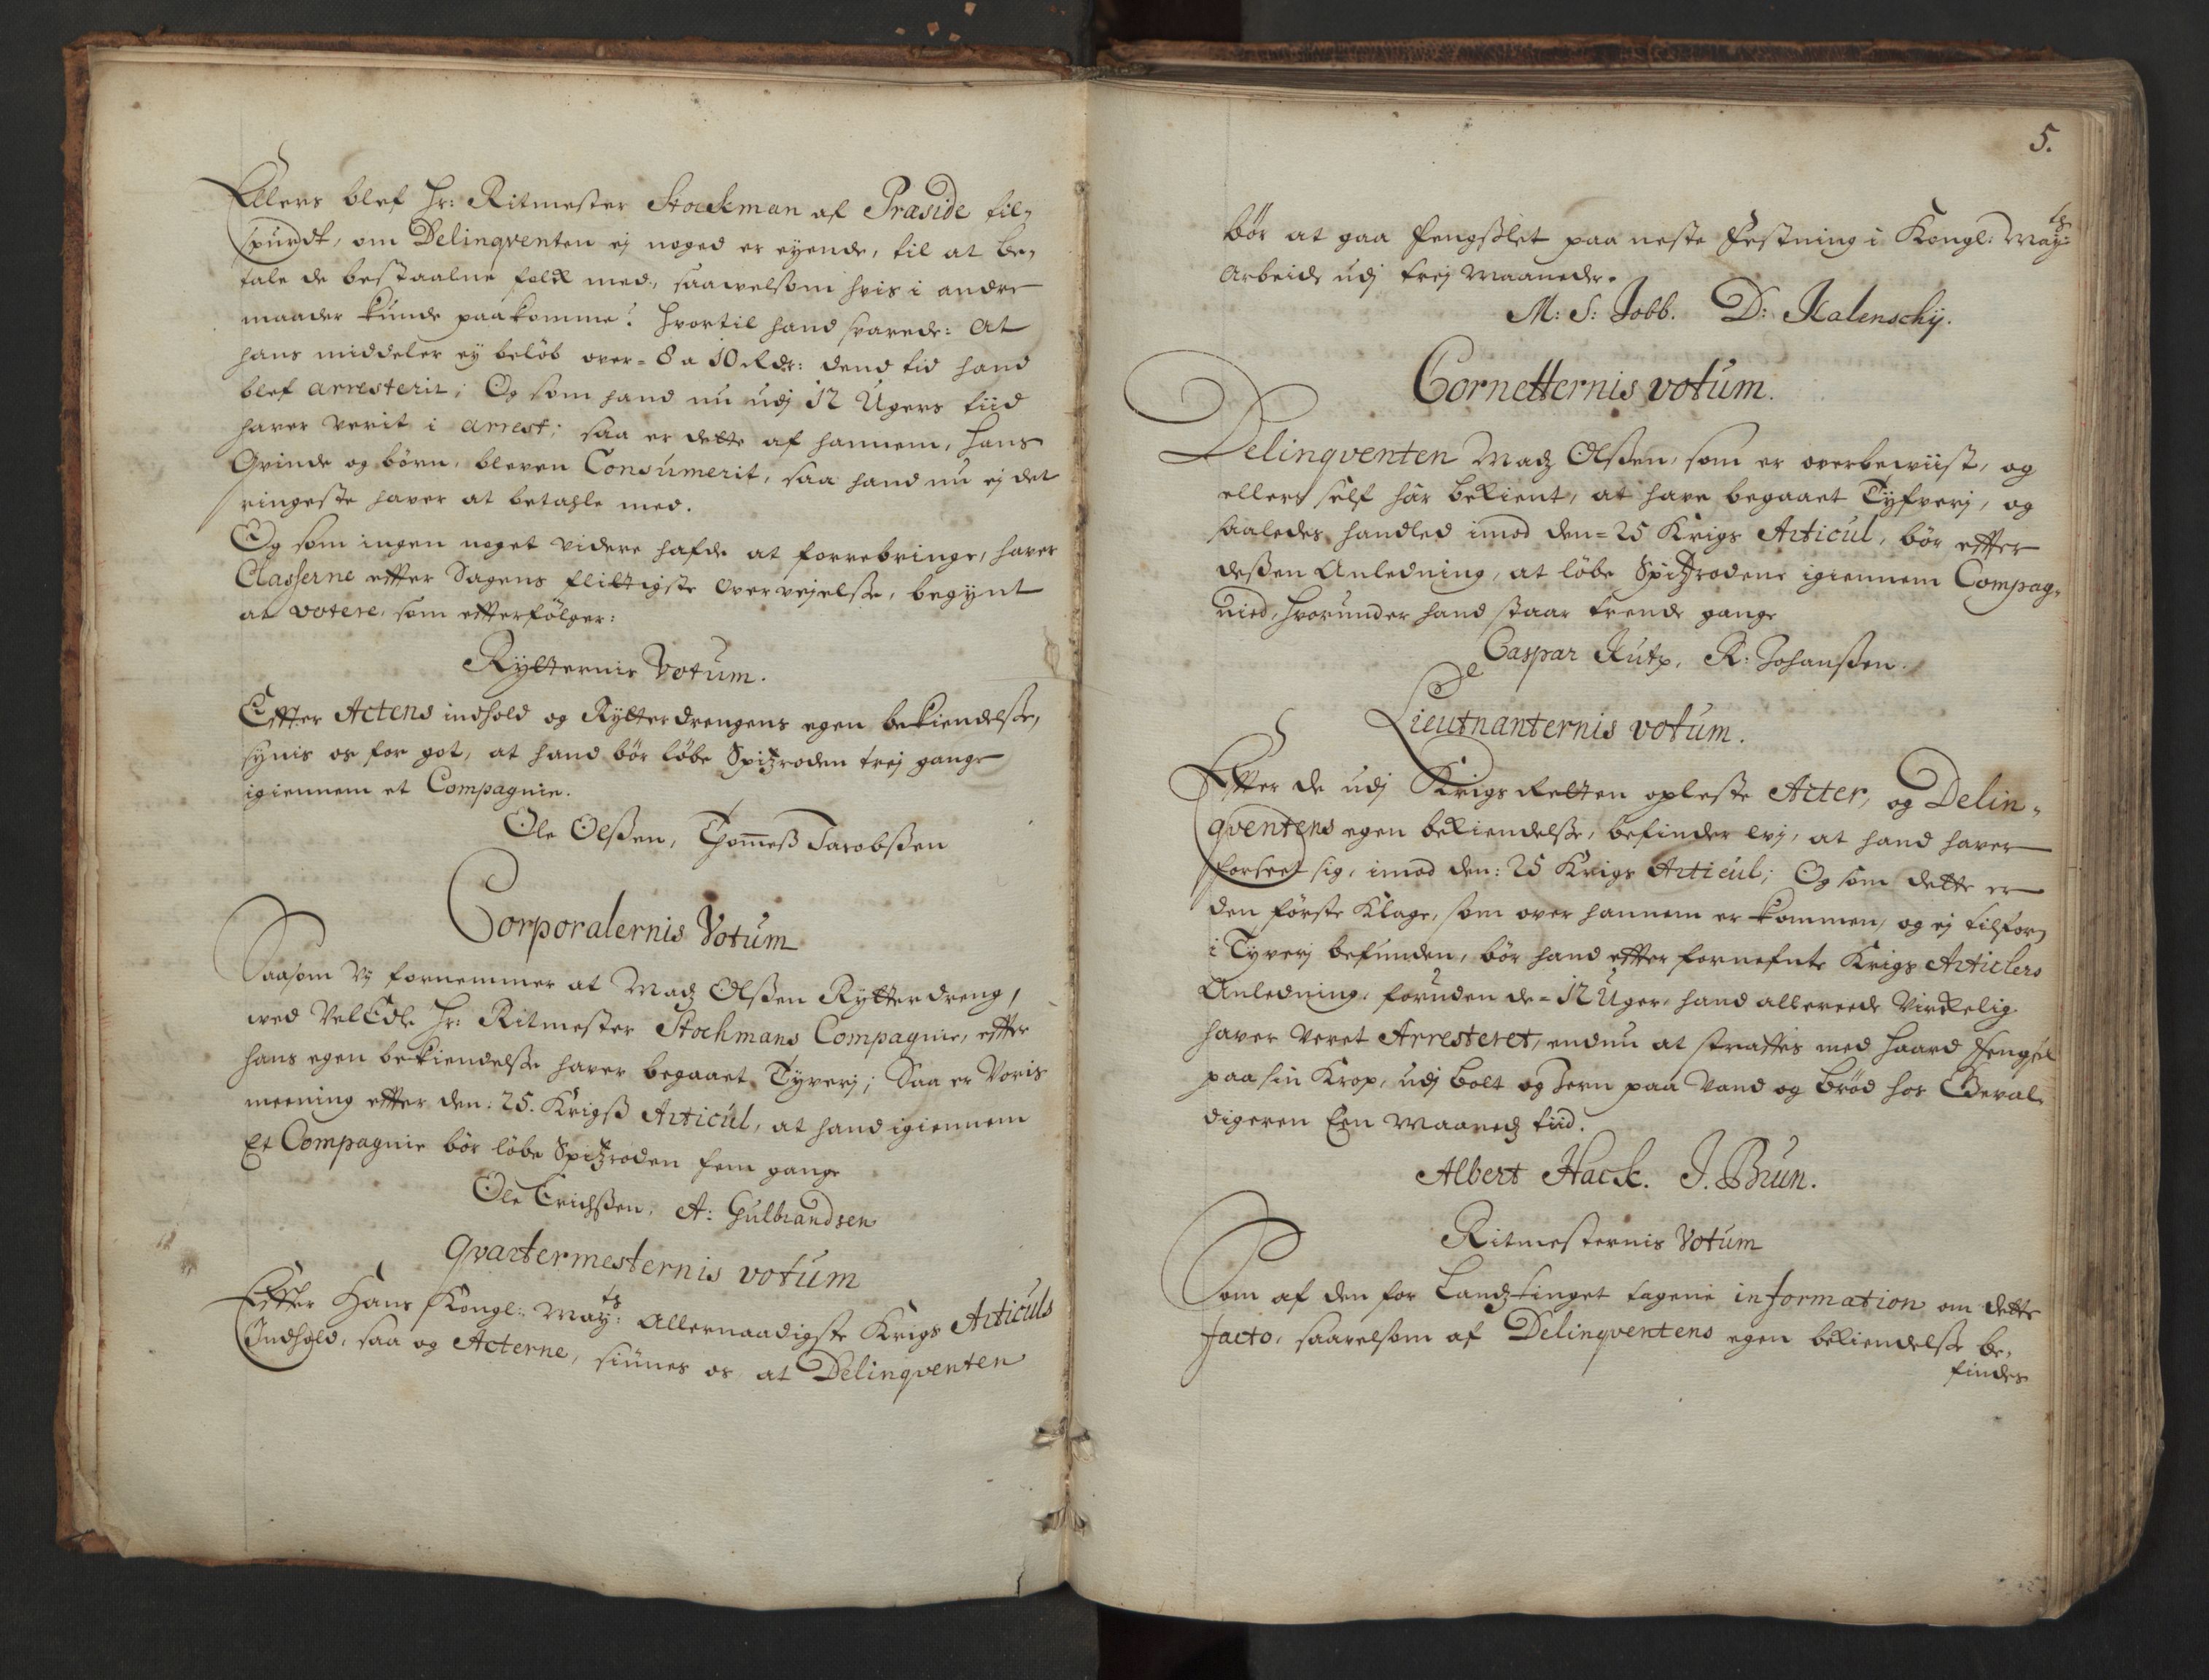 Ellers blef Hr: Ritmester Stockman af Præside til,
spurdt, om Delinqventen ej noged er eyende, til at be,
tale de bestaalne folck med, saavelsom hvis i andre
maader kunde paakomme? Hvortil hand svarede: At
hans middeler ey beløb over = 8 a 10 Rdr: dend tid hand
blef arresterit; Og som hand nu udj 12 Ugers tiid
haver verit i arrest; saa er dette af hannem, hans
Qvinde og børn, bleven Consumerit, saa hand nu ej det
ringeste haver at betahle med.
Og som ingen noget videre hafde at forrebringe, haver
Classerne efter Sagens flittigste overvejelsse, begynt
at votere, som efterfølger:
Rytternis Votum.
Effter Actens indhold og Rytterdrengens egen bekiendelsse,
synis os for got, at hand bør løbe Spitzroden trej gange
igiennem et Compagnie.
Ole Olsßen, Thommeß Jacobsßen
Corporalernis Votum
Saasom Vj fornemmer at Madz Olsßen Rytterdreng,
wed VelEdle Hr: Ritmester Stockmans Compagnie, effter
hans egen bekiendelsse haver begaaet Tyverj; Saa er Voris
meening effter den: 25. Krigß Articul, at hand igiennem
Et Compagnie bør løbe Spitzroden fem gange
Ole Erichsßen, A: Gulbrandsen
Qvartermesternis votum
Effter Hans Kongl: May:ts Allernaadigste Krigs Articuls
Indhold, saa og Acterne, siünes os at Delinqventen
5.
bør at gaa fengsslet paa neste Festning i Kongl: May:ts
Arbeide udj trej Maaneder.
M: S: Jobb. D: Kalenschÿ.
Cornetternis votum.
Delinqventen Madz Olsßen, som er overbeviist, og
ellers self har bekient, at have begaaet Tyfverj, og
saaledes handled imod den = 25 Krigs Articul, bør effter
dessen Anledning, at løbe Spitzrodene igiennem Compag,
nied, hvorunder hand staar trende gange
Caspar Rutz, R: Johansßen.
Lieutnanternis votum.
Effter de udj Krigs Retten opleste Acter, og Delin,
qventens egen bekiendelsse, befinder vj, at hand haver
forseet sig, imod den: 25 Krigs Articul; Og som dette er
den første Klage, som over hannem er kommen, og ej tilforn
i Tyverj befunden, bør hand effter fornefnte Krigs Articlers
Anledning, foruden de = 12 Uger, hand allereede Virckelig
haver veret Arresteret, endnu at straffis med haard fengsel
paa sin Krop, udj bolt og Jern paa Vand og brød hos Geval,
digeren Een Maanedz tiid.
Albert Hack. J. Brun.
Ritmesternis Votum
Som af den for Landztinget tagene information om dette
facto, saavelsom af Delinqventens egen bekiendelsse be,
findes